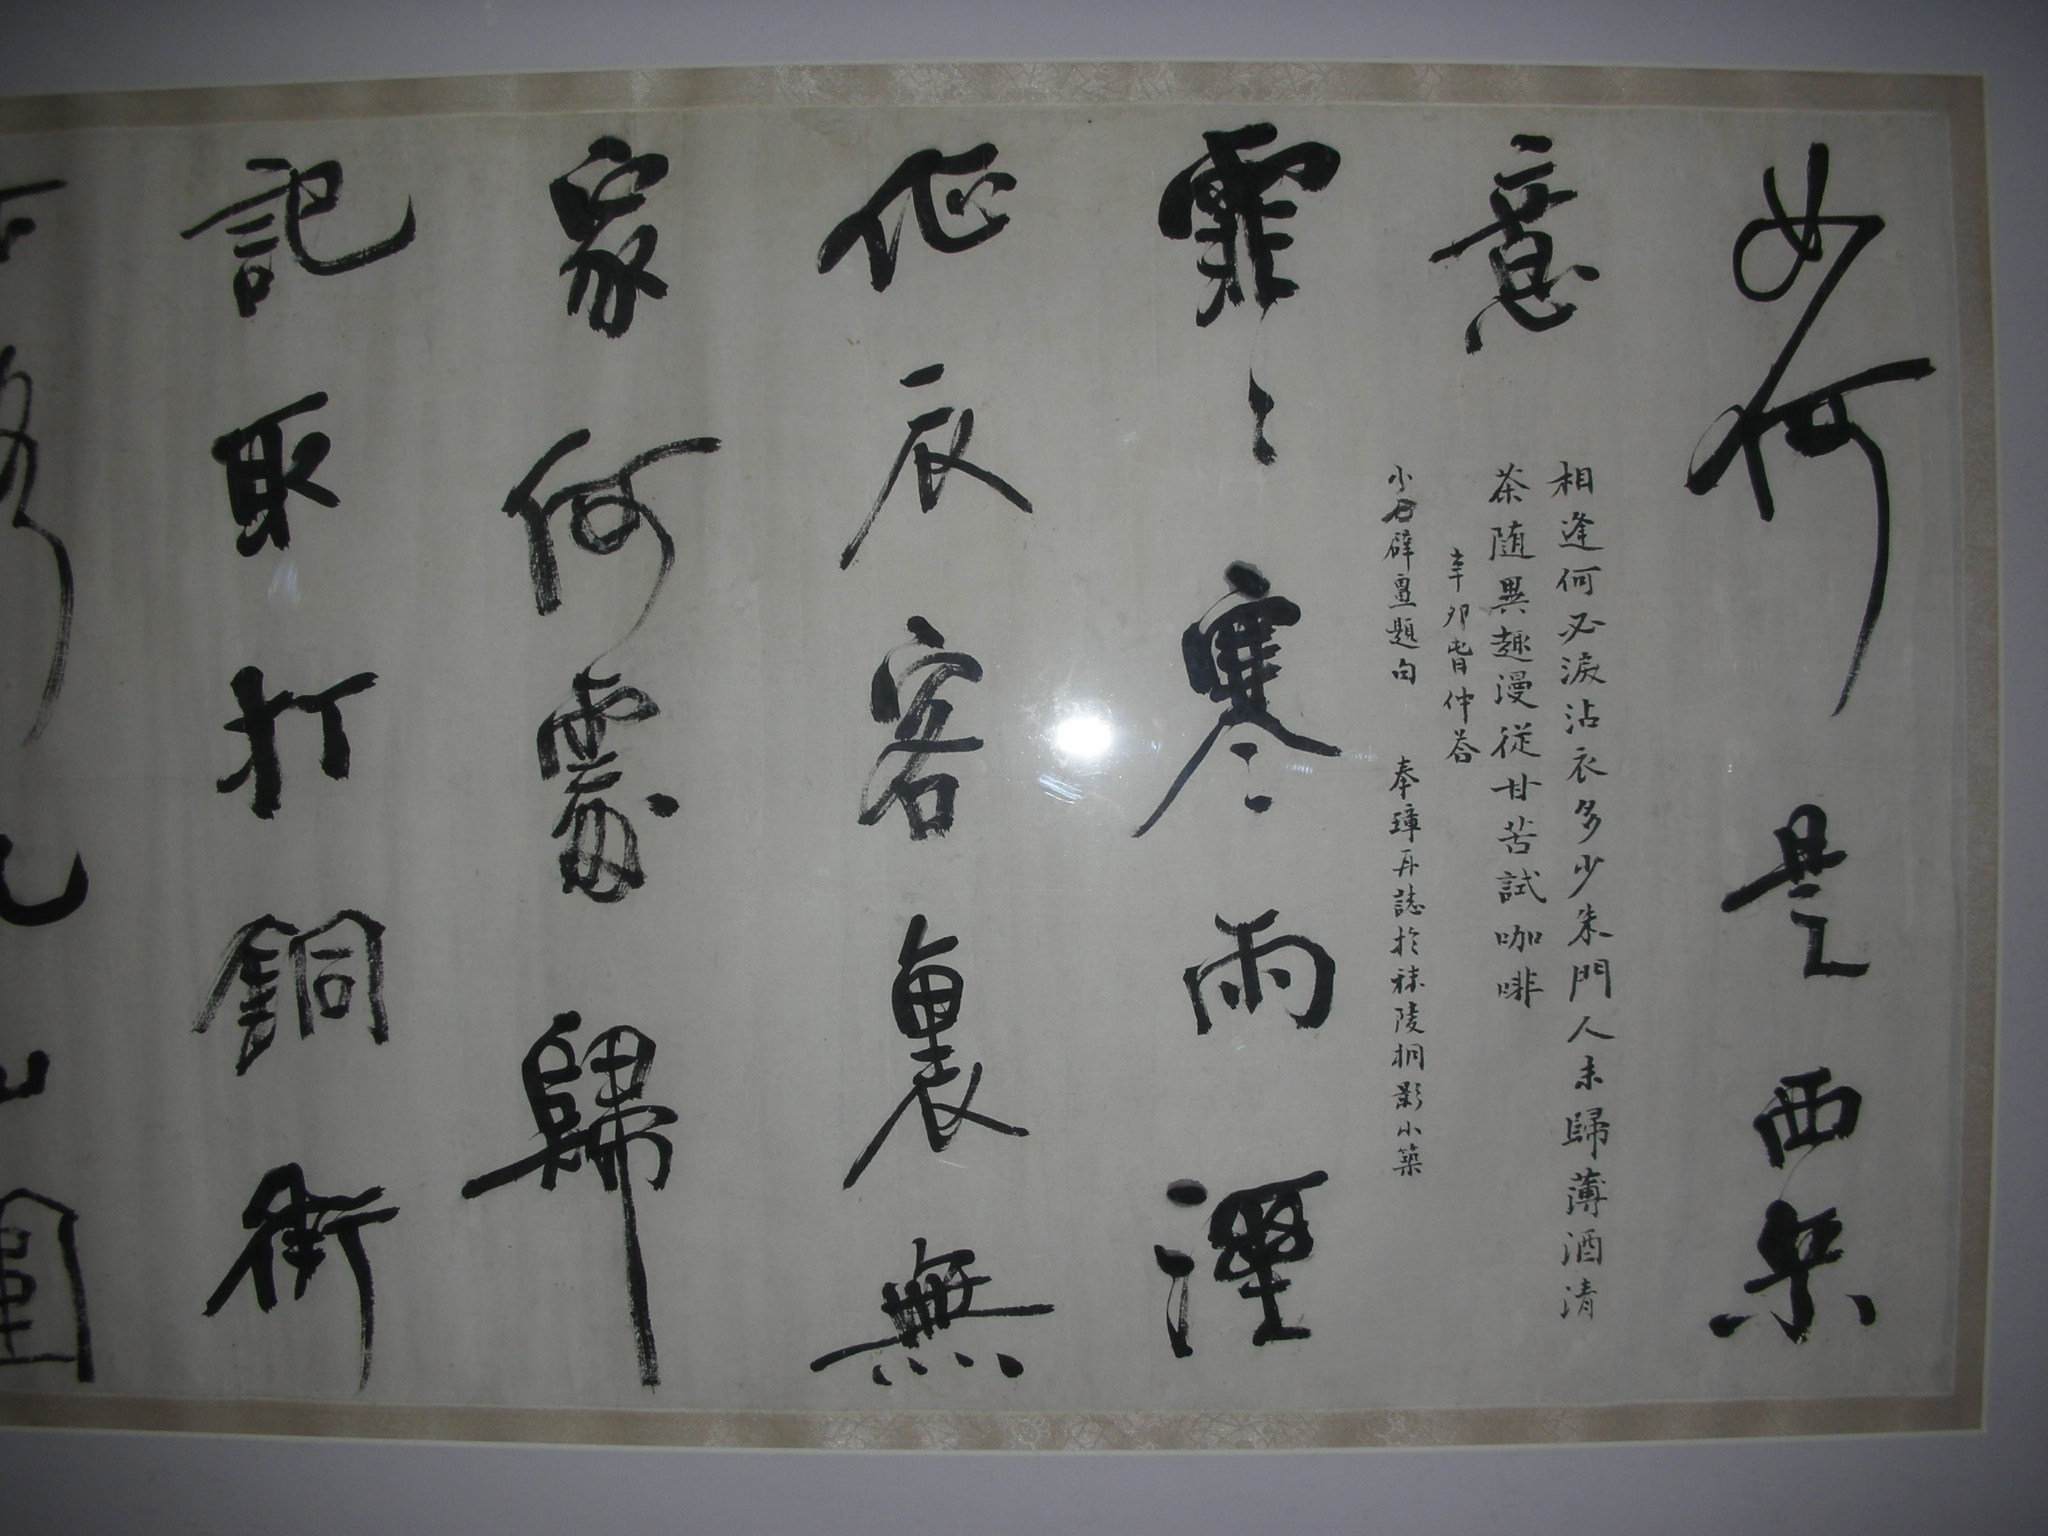 如何是西来
意
相逢何必淚沾衣多少朱門人未歸薄酒清
茶随異趣漫從甘苦試咖啡
辛卯暮仲
小石壁畫題句 奉璋再誌於秣陵桐影小築
霏〻寒〻雨溼
征衣客裏無
家何處歸
記取打銅街